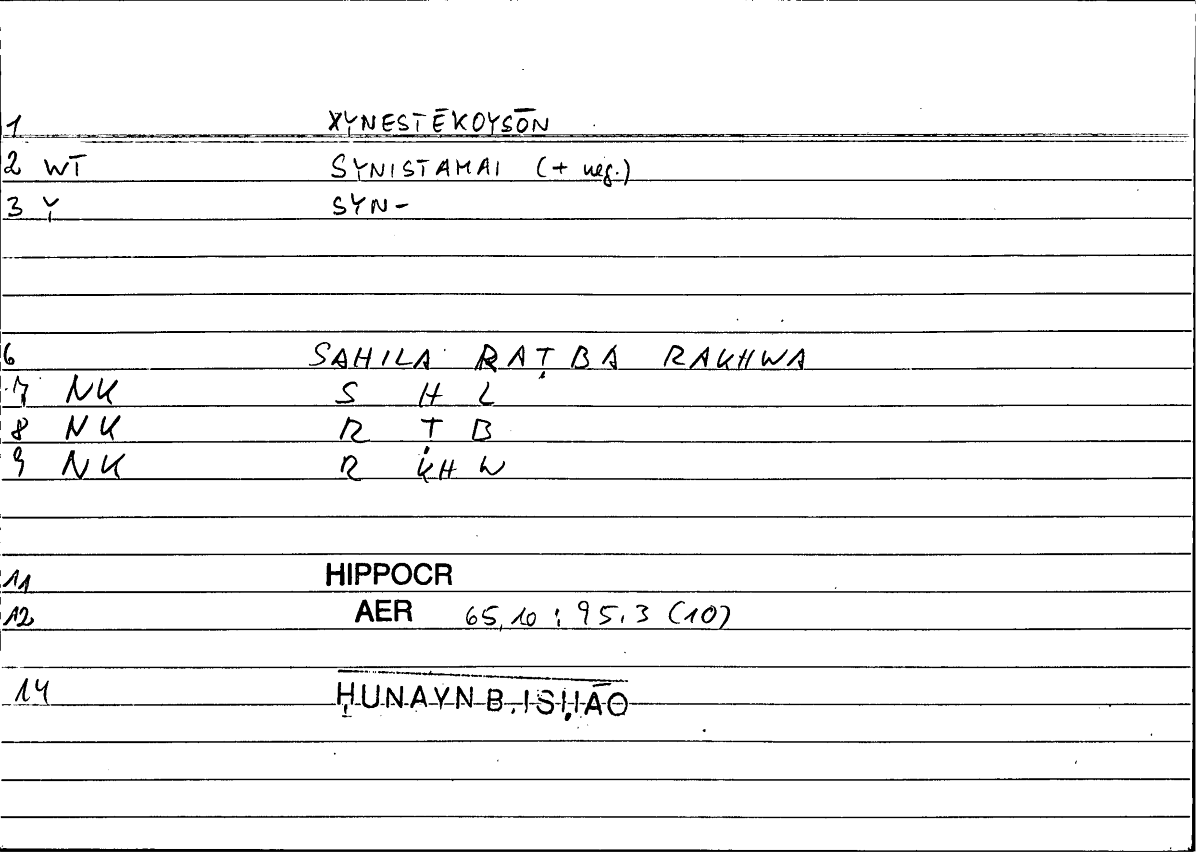 1 XYNESTĒKOYSŌN
2 WT SYNISTAMAI (+ neg.)
3 Y SYN-
6 SAHILA RAṬBA RAKHWA
7 NK S H L
8 NK R Ṭ B
9 NK R KH W
11 HIPPOCR
12 AER 65,10 : 95,3 (10)
14 ḤUNAYN B. ISḤĀQ